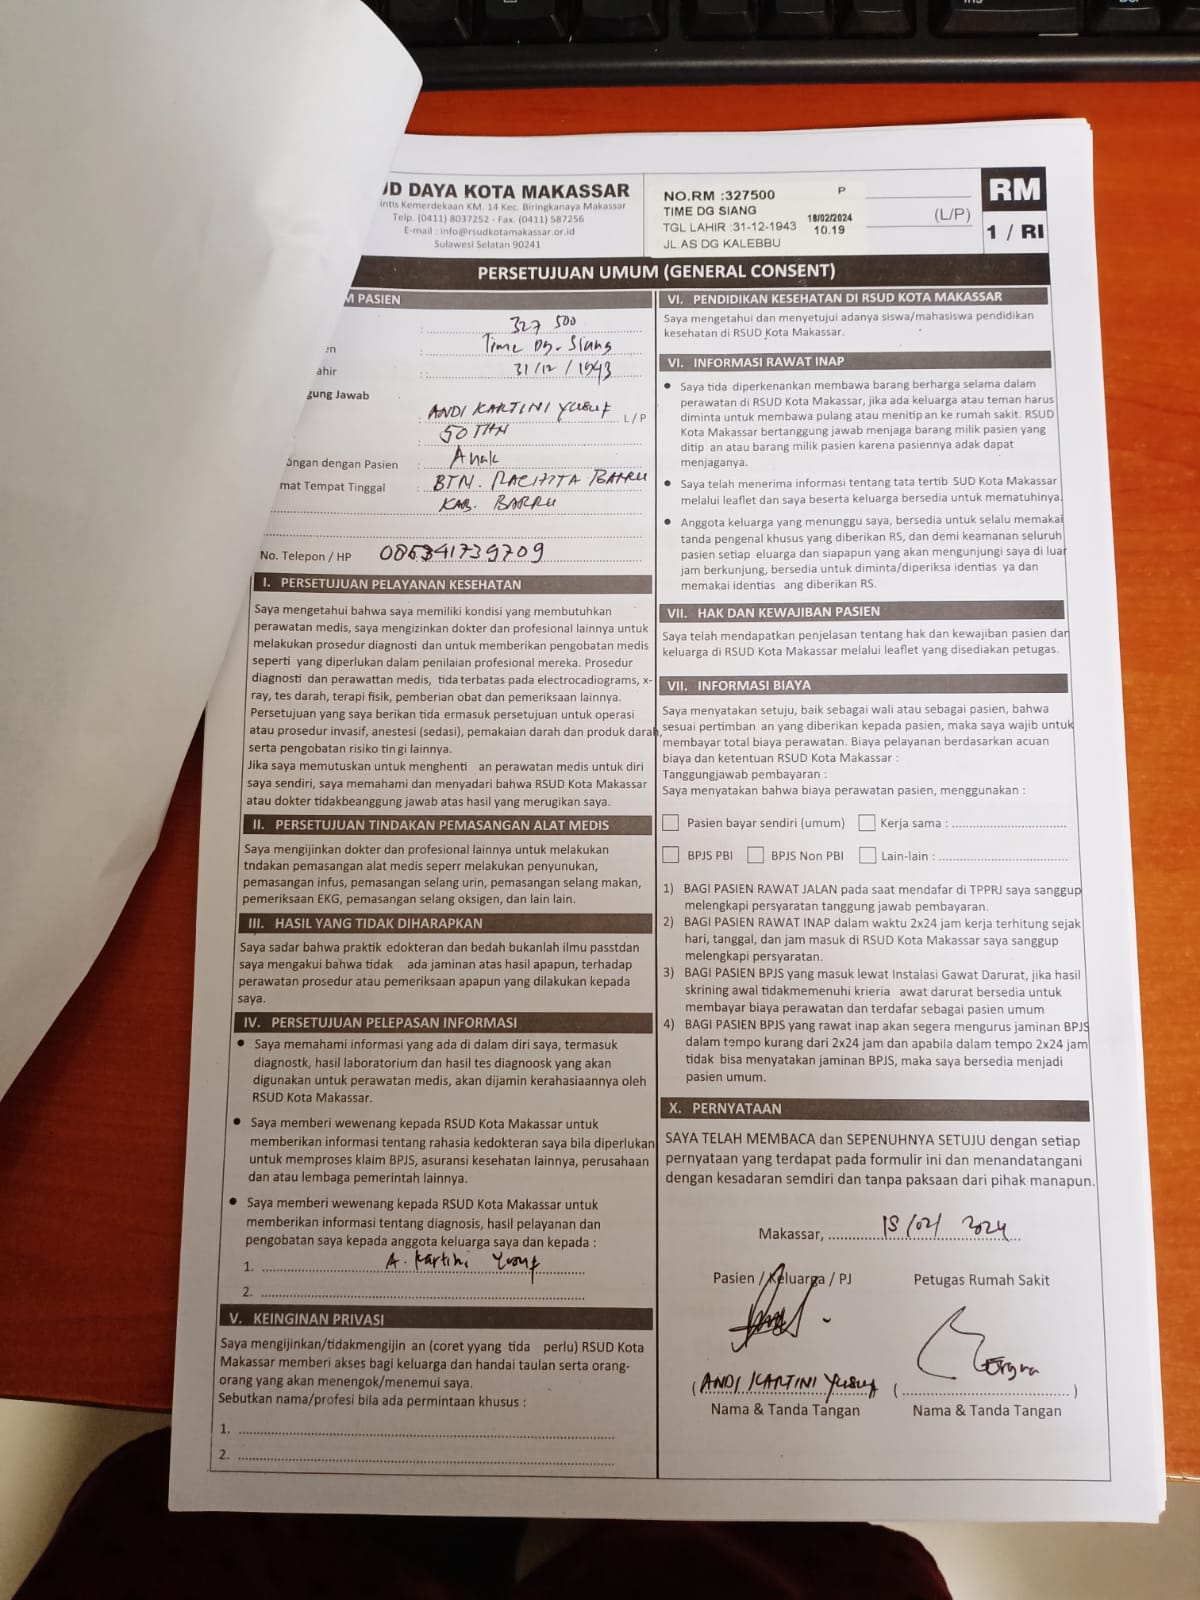 D DAYA KOTA MAKASSAR
ntis Kemerdekaan KM. 14 Kec. Biringkanaya Makassar
Telp. (0411) 8037252 - Fax. (0411) 587256
E-mail : info@rsudkotamakassar.or.id
Sulawesi Selatan 90241
NO.RM :327500 P
TIME DG SIANG
TGL LAHIR :31-12-1943
JL.AS DG KALEBBU
18/02/2024
10.19
(L/P)
RM
1 / RI
PERSETUJUAN UMUM (GENERAL CONSENT)
M PASIEN
: 327 500
en : Time Dg. Siang
ahir : 31/12/1943
gung Jawab
: ANDI KARTINI YUSUF L/P
: 50 THN
angan dengan Pasien : Anak
mat Tempat Tinggal : BTN.
KAB. BARRU
No. Telepon / HP
I. PERSETUJUAN PELAYANAN KESEHATAN
Saya mengetahui bahwa saya memiliki kondisi yang membutuhkan
perawatan medis, saya mengizinkan dokter dan profesional lainnya untuk
melakukan prosedur diagnosti dan untuk memberikan pengobatan medis
seperti yang diperlukan dalam penilaian profesional mereka. Prosedur
diagnosti dan perawattan medis, tida terbatas pada electrocadiograms, x-
ray, tes darah, terapi fisik, pemberian obat dan pemeriksaan lainnya.
Persetujuan yang saya berikan tida ermasuk persetujuan untuk operasi
atau prosedur invasif, anestesi (sedasi), pemakaian darah dan produk darah,
serta pengobatan risiko tin gi lainnya.
Jika saya memutuskan untuk menghenti an perawatan medis untuk diri
saya sendiri, saya memahami dan menyadari bahwa RSUD Kota Makassar
atau dokter tidakbeanggung jawab atas hasil yang merugikan saya.
II. PERSETUJUAN TINDAKAN PEMASANGAN ALAT MEDIS
Saya mengijinkan dokter dan profesional lainnya untuk melakukan
tndakan pemasangan alat medis seperr melakukan penyunukan,
pemasangan infus, pemasangan selang urin, pemasangan selang makan,
pemeriksaan EKG, pemasangan selang oksigen, dan lain lain.
III. HASIL YANG TIDAK DIHARAPKAN
Saya sadar bahwa praktik edokteran dan bedah bukanlah ilmu passtdan
saya mengakui bahwa tidak ada jaminan atas hasil apapun, terhadap
perawatan prosedur atau pemeriksaan apapun yang dilakukan kepada
saya.
IV. PERSETUJUAN PELEPASAN INFORMASI
● Saya memahami informasi yang ada di dalam diri saya, termasuk
diagnostk, hasil laboratorium dan hasil tes diagnoosk yang akan
digunakan untuk perawatan medis, akan dijamin kerahasiaannya oleh
RSUD Kota Makassar.
● Saya memberi wewenang kepada RSUD Kota Makassar untuk
memberikan informasi tentang rahasia kedokteran saya bila diperlukan
untuk memproses klaim BPJS, asuransi kesehatan lainnya, perusahaan
dan atau lembaga pemerintah lainnya.
● Saya memberi wewenang kepada RSUD Kota Makassar untuk
memberikan informasi tentang diagnosis, hasil pelayanan dan
pengobatan saya kepada anggota keluarga saya dan kepada :
1. A. Kartini Yusuf
2.
V. KEINGINAN PRIVASI
Saya mengijinkan/tidakmengijin an (coret yyang tida perlu) RSUD Kota
Makassar memberi akses bagi keluarga dan handai taulan serta orang-
orang yang akan menengok/menemui saya.
Sebutkan nama/profesi bila ada permintaan khusus :
1.
2.
VI. PENDIDIKAN KESEHATAN DI RSUD KOTA MAKASSAR
Saya mengetahui dan menyetujui adanya siswa/mahasiswa pendidikan
kesehatan di RSUD Kota Makassar.
VI. INFORMASI RAWAT INAP
● Saya tida diperkenankan membawa barang berharga selama dalam
perawatan di RSUD Kota Makassar, jika ada keluarga atau teman harus
diminta untuk membawa pulang atau menitip an ke rumah sakit. RSUD
Kota Makassar bertanggung jawab menjaga barang milik pasien yang
ditip an atau barang milik pasien karena pasiennya adak dapat
menjaganya.
● Saya telah menerima informasi tentang tata tertib SUD Kota Makassar
melalui leaflet dan saya beserta keluarga bersedia untuk mematuhinya.
● Anggota keluarga yang menunggu saya, bersedia untuk selalu memakai
tanda pengenal khusus yang diberikan RS, dan demi keamanan seluruh
pasien setiap eluarga dan siapapun yang akan mengunjungi saya di luar
jam berkunjung, bersedia untuk diminta/diperiksa identias ya dan
memakai identias ang diberikan RS.
VII. HAK DAN KEWAJIBAN PASIEN
Saya telah mendapatkan penjelasan tentang hak dan kewajiban pasien dan
keluarga di RSUD Kota Makassar melalui leaflet yang disediakan petugas.
VII. INFORMASI BIAYA
Saya menyatakan setuju, baik sebagai wali atau sebagai pasien, bahwa
sesuai pertimban an yang diberikan kepada pasien, maka saya wajib untuk
membayar total biaya perawatan. Biaya pelayanan berdasarkan acuan
biaya dan ketentuan RSUD Kota Makassar :
Tanggungjawab pembayaran :
Saya menyatakan bahwa biaya perawatan pasien, menggunakan :
Pasien bayar sendiri (umum) Kerja sama :
BPJS PBI BPJS Non PBI Lain-lain :
1) BAGI PASIEN RAWAT JALAN pada saat mendafar di TPPRJ saya sanggup
melengkapi persyaratan tanggung jawab pembayaran.
2) BAGI PASIEN RAWAT INAP dalam waktu 2x24 jam kerja terhitung sejak
hari, tanggal, dan jam masuk di RSUD Kota Makassar saya sanggup
melengkapi persyaratan.
3) BAGI PASIEN BPJS yang masuk lewat Instalasi Gawat Darurat, jika hasil
skrining awal tidakmemenuhi krieria awat darurat bersedia untuk
membayar biaya perawatan dan terdafar sebagai pasien umum
4) BAGI PASIEN BPJS yang rawat inap akan segera mengurus jaminan BPJS
dalam tempo kurang dari 2x24 jam dan apabila dalam tempo 2x24 jam
tidak bisa menyatakan jaminan BPJS, maka saya bersedia menjadi
pasien umum.
X. PERNYATAAN
SAYA TELAH MEMBACA dan SEPENUHNYA SETUJU dengan setiap
pernyataan yang terdapat pada formulir ini dan menandatangani
dengan kesadaran semdiri dan tanpa paksaan dari pihak manapun.
Makassar, 18/02/ 2024
Pasien / Keluarga / PJ Petugas Rumah Sakit
(ANDI KARTINI YUSUF ( )
Nama & Tanda Tangan Nama & Tanda Tangan